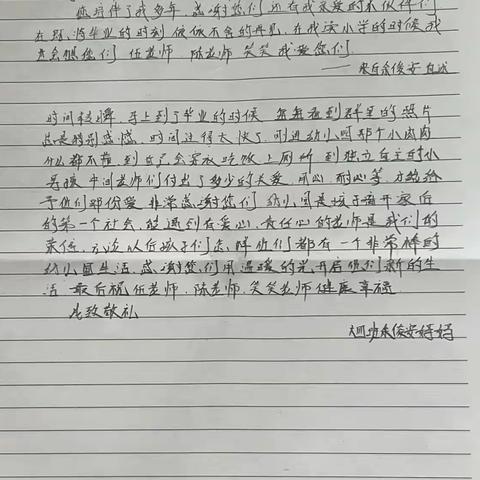 您陪伴了我多年，感谢您们，还有我亲爱的小伙伴们
在即将毕业的时刻 依依不舍的再见，在我读小学的时候我
也会想您们 伍老师 陈老师 笑笑 我爱您们.
——来自余俊安
时间荏苒，马上到了毕业的时候 每每看到群里的照片
总是特别感慨，时间过得太快了，刚进幼儿园那个小肉肉
什么都不懂，到自己会穿衣吃饭上厕所 到独立自主的小
男孩，中间老师们付出了多少的关爱，用心，耐心等
予他们那份爱，非常感谢您们 幼儿园是孩子离开家后
的第一个社会，能遇到有爱心，责任心的老师是我们的
荣幸，以后孩子们 他们都有一个非常棒的
幼儿园生活，感谢您们用温暖的光开启他们新的生
活 最后祝伍老师，陈老师，笑笑老师健康幸福
此致敬礼
大四班余俊安妈妈